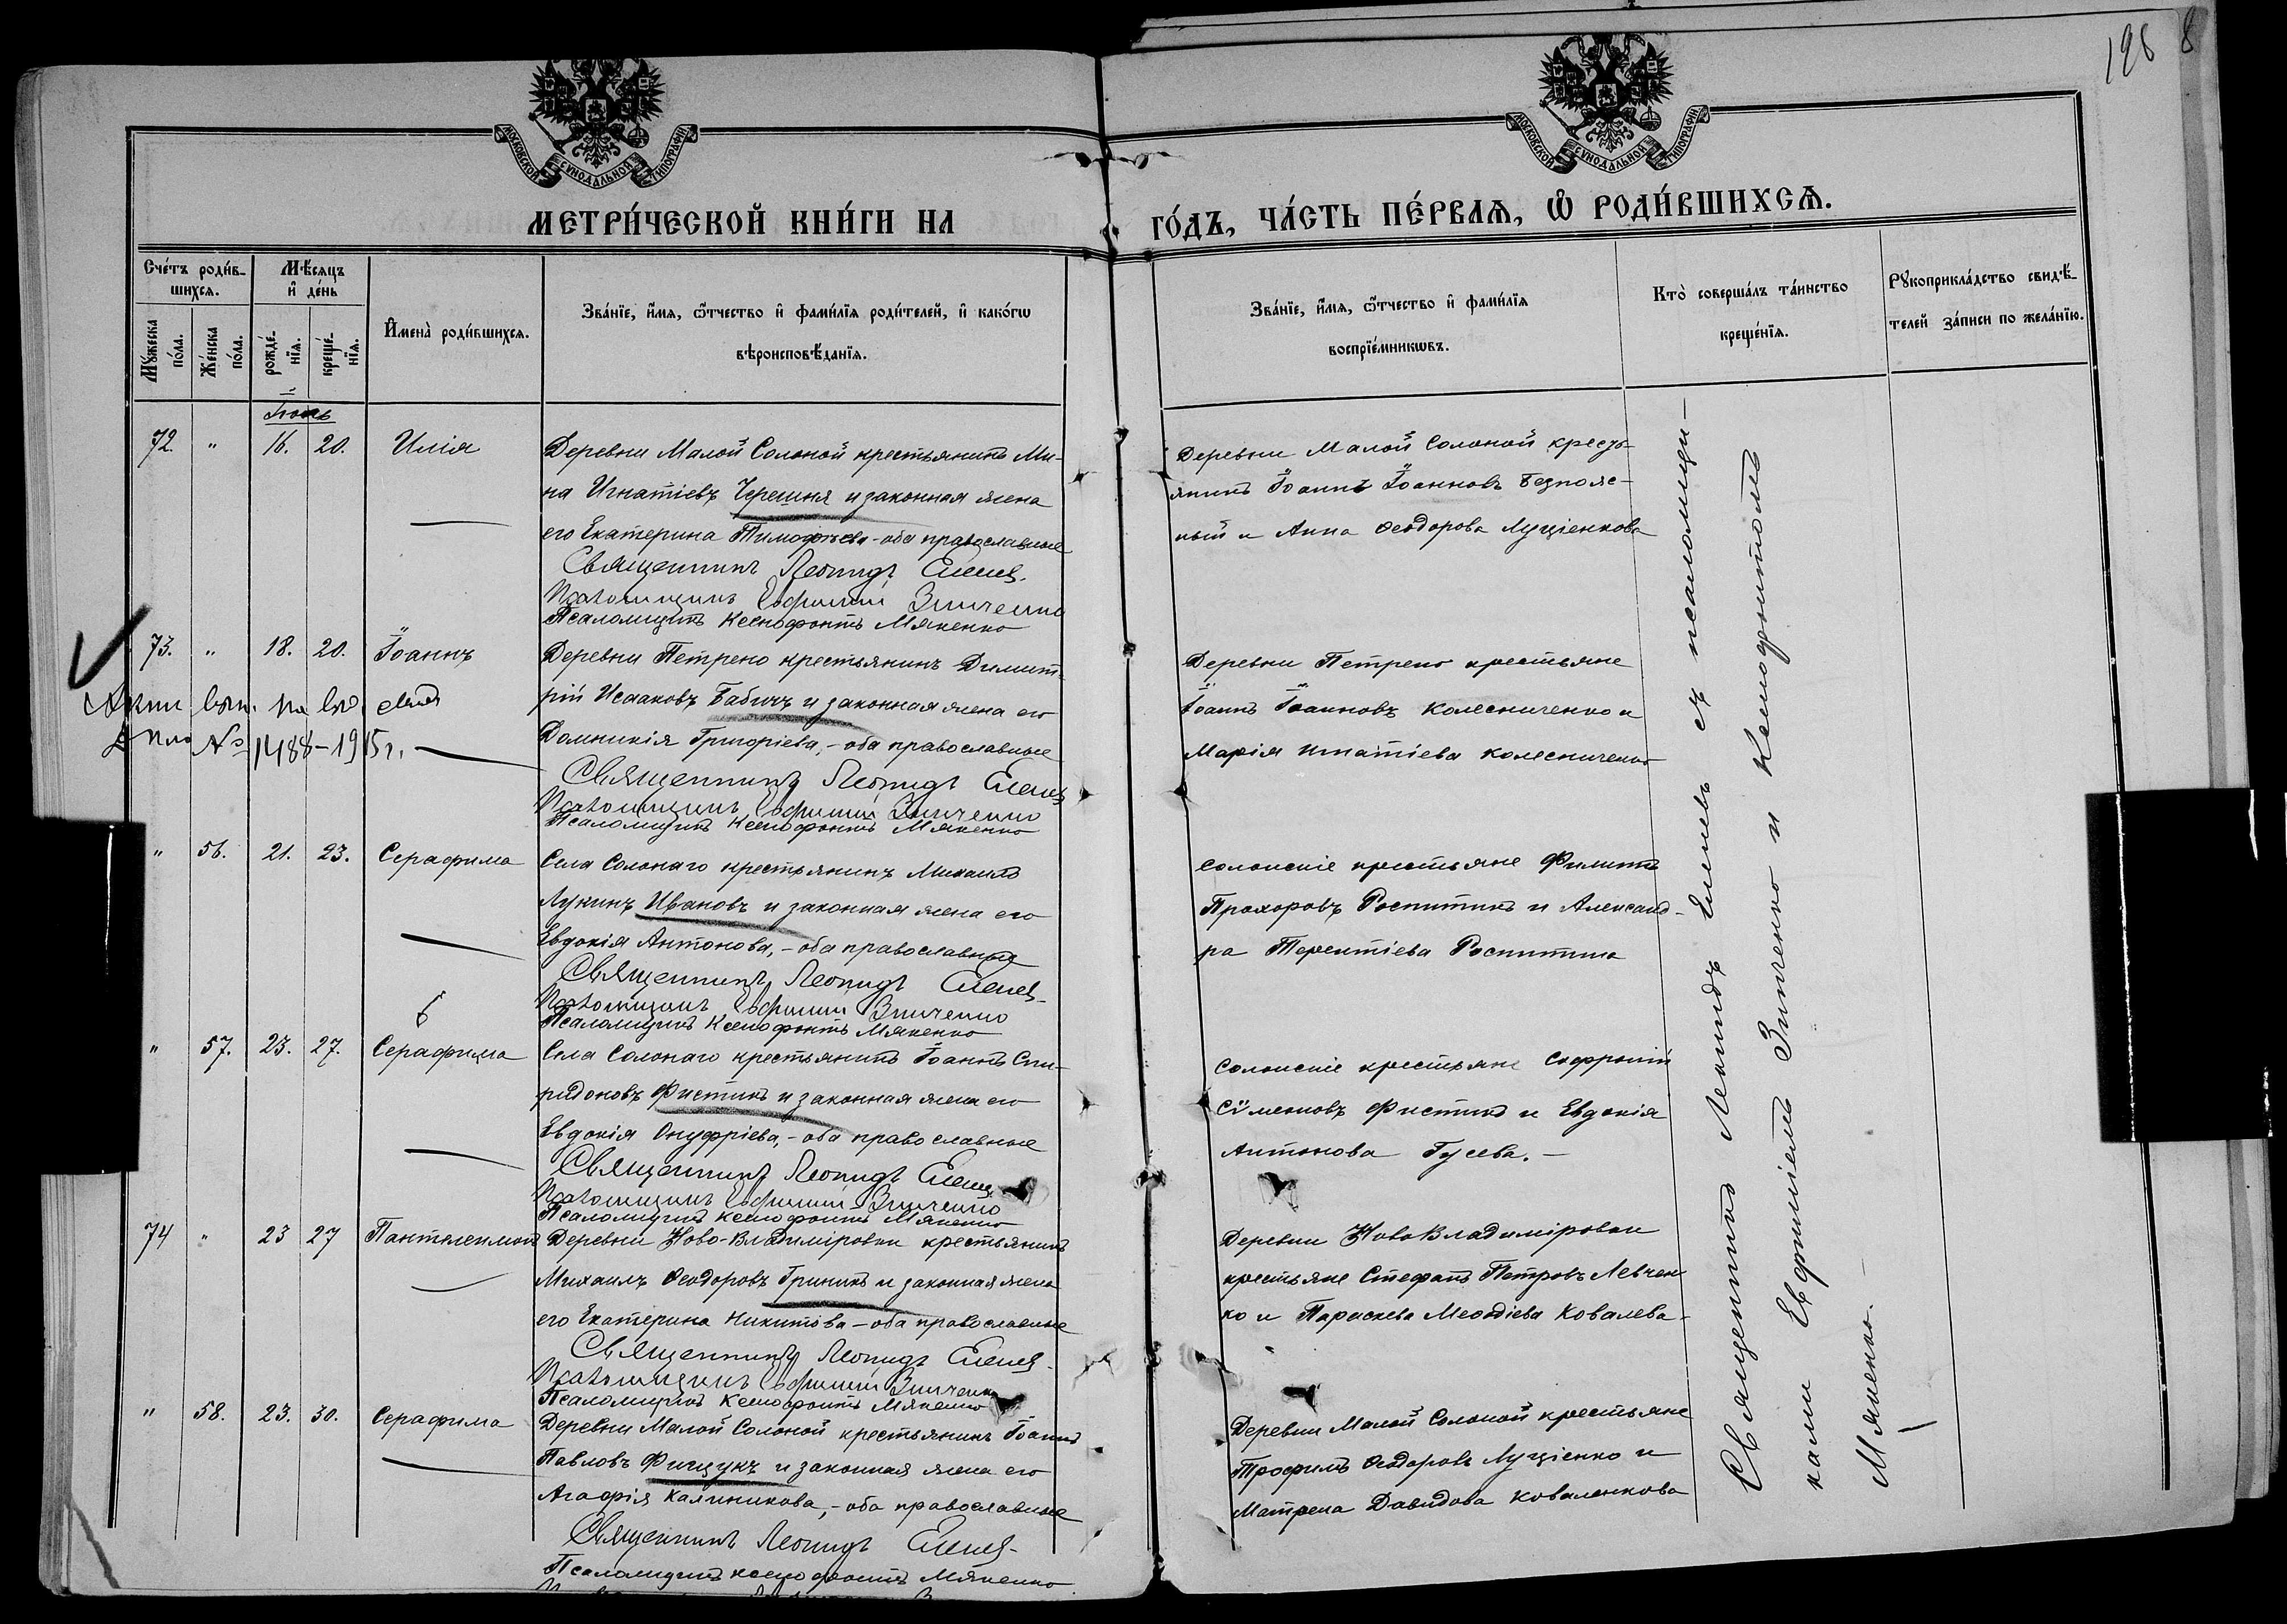 198 8
МОСКОВСКОЙ СѴНОДАЛЬНОЙ ТИПОГРАФІИ
МОСКОВСКОЙ СѴНОДАЛЬНОЙ ТИПОГРАФІИ
МЕТРИ́ЧЕСКОЙ КНИ́ГИ НА
ГО́ДЪ, ЧА́СТЬ ПЕ́РВАѦ, Ѡ҆ РОДИ́ВШИХСѦ.
Сче́тъ роди́в-
шихсѧ.
Мꙋ́жеска
по́ла.
Же́нска
по́ла.
Мѣ́сѧцъ
и҆ де́нь
рожде́-
нїѧ.
креще́-
нїѧ.
И҆мена̀ роди́вшихсѧ.
Зва́нїе, и҆́мѧ, ѻ҆́тчество и҆ фами́лїѧ роди́телей, и҆ како́гѡ
вѣроисповѣ́данїѧ.
Зва́нїе, и҆́мѧ, ѻ҆́тчество и҆ фами́лїѧ
воспрїе́мникѡвъ.
Кто̀ соверша́лъ та́инство
креще́нїѧ.
Рꙋкоприкла́дство свидѣ́-
телей за́писи по жела́нїю.
Іюнь
72. " 16. 20. Илія
Деревни Малой Солоной крестьянинъ Ми-
на Игнатіевъ Черешня и законная жена
его Екатерина Тимофѣева - оба православные
Священникъ Леонидъ Еленев.
Псаломщикъ Евфимій Зинченко
Псаломщикъ Ксенофонтъ Мякенко
Деревни Малой Солоной кресть-
янинъ Іоаннъ Іоанновъ Безпояс-
ный и Анна Ѳеодорова Луценкова
73. " 18. 20. Іоаннъ
Деревни Петрено крестьянинъ Димит-
рій Исааковъ Бабичъ и законная жена его
Домникія Григоріева, - оба православные
Священникъ Леонидъ Елене
Псаломщикъ Евфимій Зинченко
Псаломщикъ Ксенофонтъ Мякенко
№ 1488-1915 г.
Деревни Петрено крестьяне
Іоаннъ Іоанновъ Колесниченко и
Марія Игнатіева Колесниченко
" 56. 21. 23. Серафима
Села Солонаго крестьянинъ Михаилъ
Лукинъ Ивановъ и законная жена его
Евдокія Антонова, - оба православные
Священникъ Леонидъ Еленев.
Псаломщикъ Евфимій Зинченко
Псаломщикъ Ксенофонтъ Мякенко
Солонскіе крестьяне Филиппъ
Прохоровъ Роспитинъ и Александ-
ра Терентіева Роспитина
" 57. 23. 27. Серафима
Села Солонаго крестьянинъ Іоаннъ Спи-
ридоновъ Фистинъ и законная жена его
Евдокія Онуфріева, - оба православные
Священникъ Леонидъ Елене
Псаломщикъ Евфимій Зинченко
Псаломщикъ Ксенофонтъ Мякенко
Солонскіе крестьяне Софроній
Сѵмеоновъ Фистинъ и Евдокія
Антонова Гусева. -
74 " 23 27 Пантелеимонъ
Деревни Ново-Владиміровки крестьянинъ
Михаилъ Ѳеодоровъ Гриникъ и законная жена
его Екатерина Никитова - оба православные
Священникъ Леонидъ Еленев.
Псаломщикъ Евфимій Зинченко
Псаломщикъ Ксенофонтъ Мякенко
Деревни НовоВладиміровки
крестьяне Стефанъ Петровъ Левчен-
ко и Параскева Меѳодіева Ковалева -
" 58. 23. 30. Серафима
Деревни Малой Солоной крестьянинъ Іоаннъ
Павловъ Фищукъ и законная жена его
Агафія Калиникова, - оба православные
Священникъ Леонидъ Еленев.
Псаломщикъ Ксенофонтъ Мякенко
Деревни Малой Солоной крестьяне
Трофимъ Ѳеодоровъ Луценко и
Матрена Давидова Коваленкова
Священникъ Леонидъ Еленевъ съ псаломщи-
ками Евфиміемъ Зинченко и Ксенофонтомъ
Мякенко. -